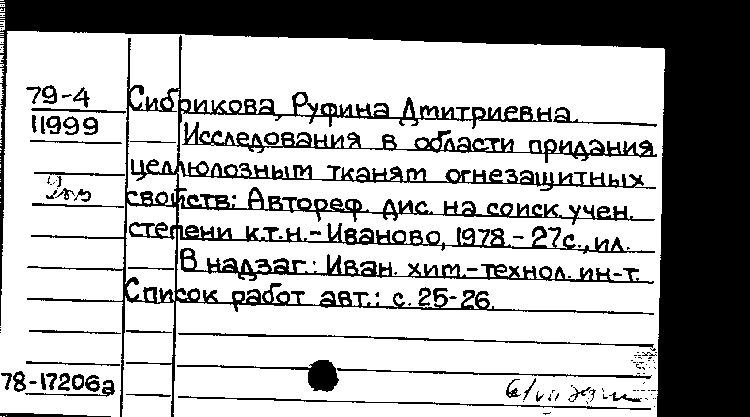 79-4 Сибрикова, Руфина Дмитриевна.
11999 Исследования в области придания
целлюлозным тканям огнезащитных
свойств: Автореф. дис. на соиск. учен.
степени к.т.н.-Иваново, 1978.-27с., ил.
В надзаг.: Иван. хим.-технол. ин-т.
Список работ авт.: с. 25-26.
78-17206а